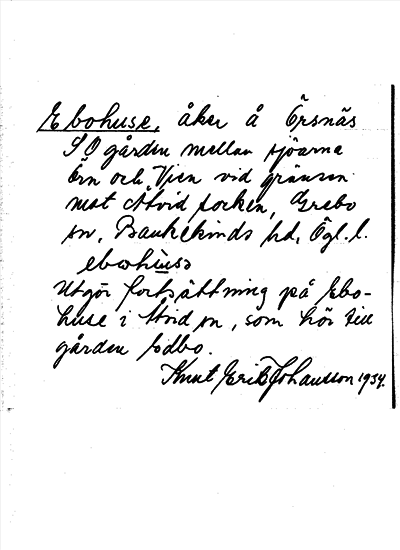 Ebohuse, åker å Örsnäs
S O gården mellan sjöarna
Örn och Vjen vid gränsen
mot Åtvid socken, Grebo
sn, Bankekinds hd, Ögl. l.
Utgör fortsättning på Ebo-
huse i Åtvid sn, som hör till
gården Edbo.
Knut Erik Johansson 1934.